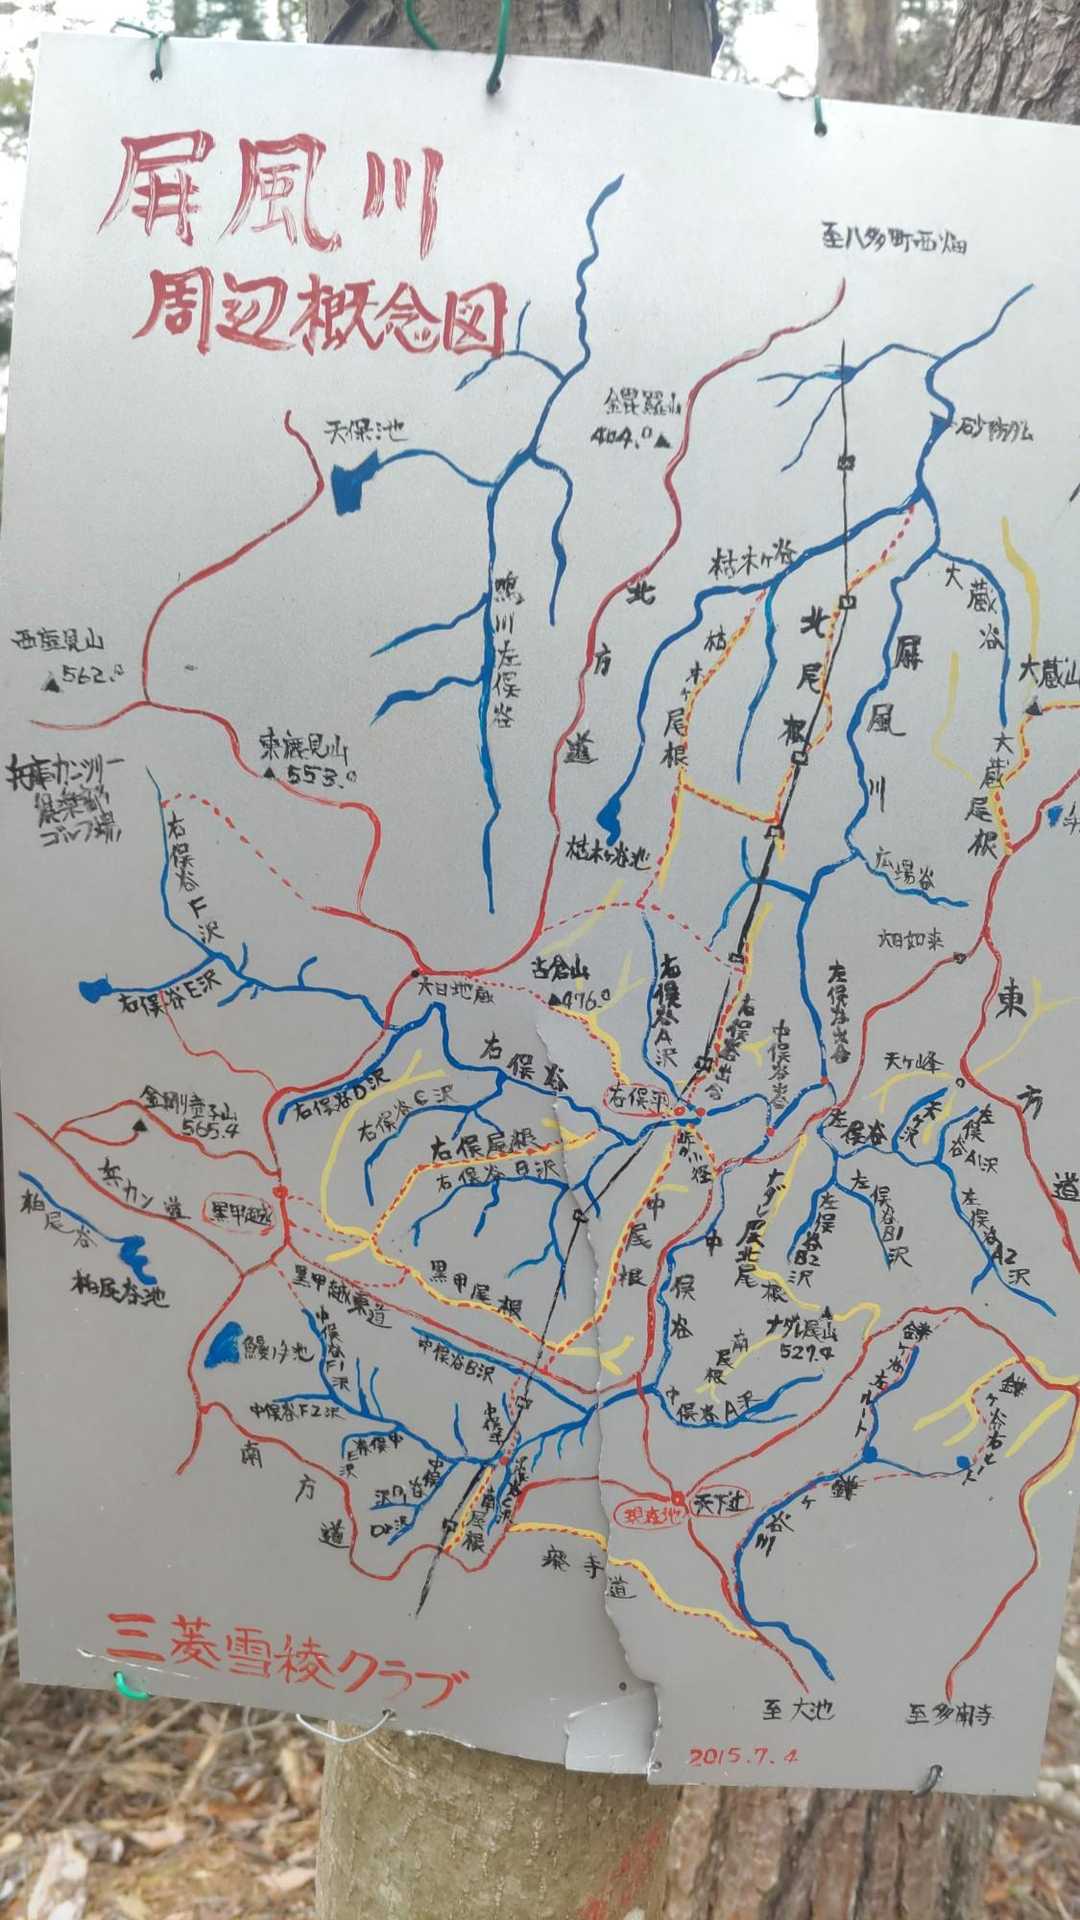 屏風川
周辺概念図
至八多町西畑
天保池
金毘羅山
404.0
砂防ダム
枯木ヶ谷
大蔵谷
鴨川左俣谷
北方道
枯木ヶ尾根
北尾根
屏風川
西鹿見山
562.0
大蔵山
東鹿見山
553.0
兵庫カンツリー
倶楽部
ゴルフ場
大蔵尾根
枯木ヶ谷池
広場谷
右俣谷F沢
大日如来
右俣谷E沢
六日地蔵
古倉山
476.0
右俣谷A沢
右俣谷出合
中俣谷出合
左俣谷出合
東方道
天ヶ峰
右俣谷
右俣谷D沢
右俣平
金剛童子山
565.4
右俣谷C沢
右俣尾根
右俣谷B沢
左俣谷
左俣谷A1沢
左俣谷A2沢
左俣谷B1沢
左俣谷B2沢
兵カン道
柏尾谷
黒甲越
柏尾谷池
中尾根
中俣谷
黒甲越東道
黒甲尾根
ナダレ尾北尾根
ナダレ尾山
527.4
南尾根
鰻ノ手池
中俣谷F1沢
中俣谷B沢
中俣谷A沢
中俣谷F2沢
鎌ヶ谷左ルート
鎌ヶ谷右ルート
南方道
南尾根
現在地
天下辻
鎌ヶ谷川
廃寺道
三菱雪稜クラブ
至大池
至多聞寺
2015.7.4